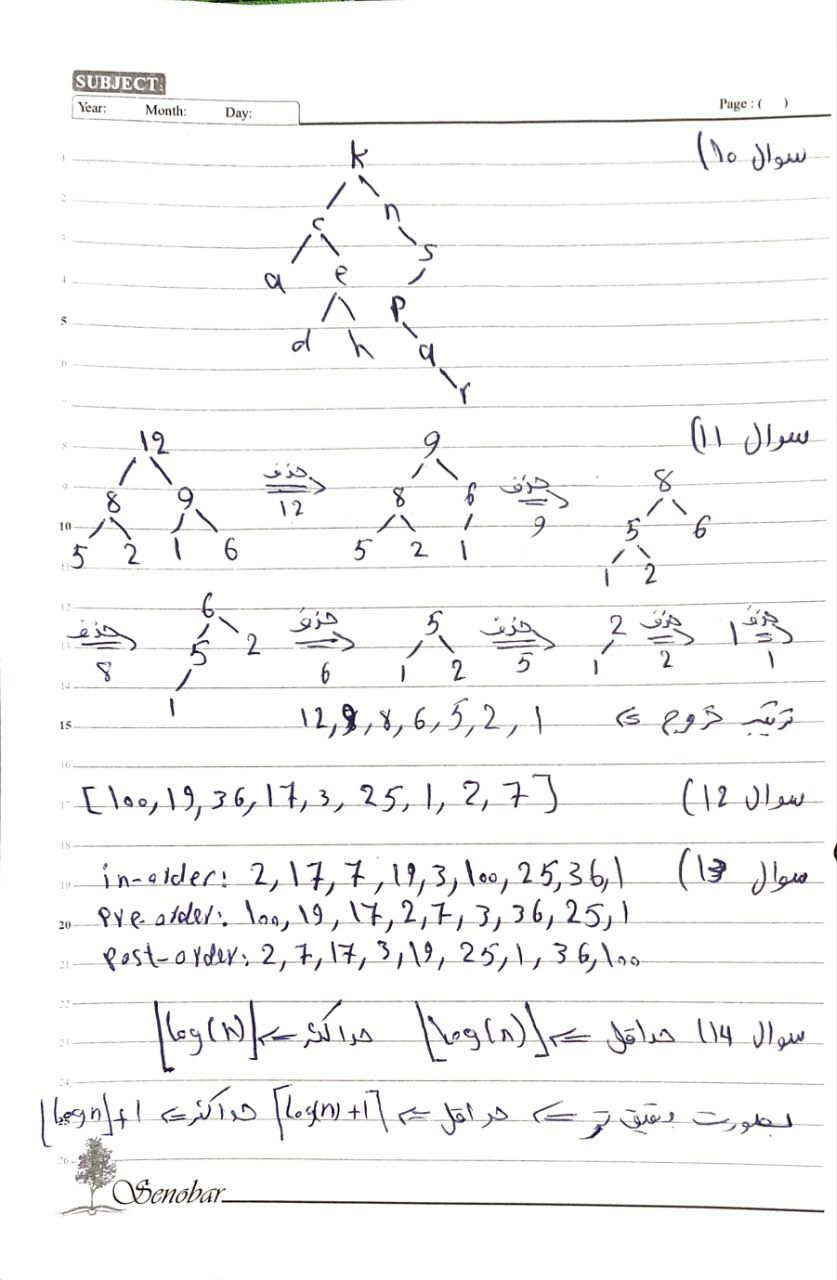 SUBJECT:
Year: Month: Day:
Page : ( )
سوال 10)
k
c n
a e s
d h p
q
r
سوال 11)
12
8 9
5 2 1 6
حذف 12
9
8 6
5 2 1
حذف 9
8
5 6
1 2
حذف 8
6
5 2
1
حذف 6
5
1 2
حذف 5
2
1
حذف 2
1
حذف 1
ترتیب خروج => 12, 9, 8, 6, 5, 2, 1
سوال 12) [100, 19, 36, 17, 3, 25, 1, 2, 7]
سوال 13) in-order: 2, 17, 7, 19, 3, 100, 25, 36, 1
pre-order: 100, 19, 17, 2, 7, 3, 36, 25, 1
post-order: 2, 7, 17, 3, 19, 25, 1, 36, 100
سوال 14) حداقل <= ⌊log(n)⌋ حداکثر <= ⌊log(n)⌋
بصورت دقیق تر <= حداقل <= ⌈log(n)+1⌉ حداکثر <= ⌊log n⌋+1
Senobar
1
2
3
4
5
6
7
8
9
10
11
12
13
14
15
16
17
18
19
20
21
22
23
24
26